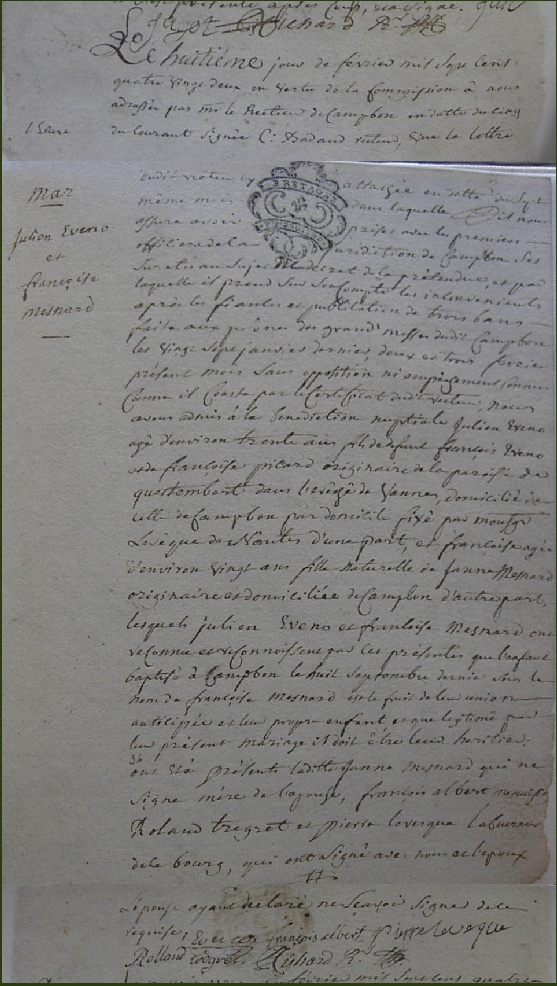 Richard Rr
Le huitième jour de fevrier mil sept cent
quatre vingt deux, en vertu de la Commission à nous
adressée par mr le Recteur de Campbon en datte du cinq
du Courant Signée C: Dadaud recteur, que la lettre
mar
Julien Eveno
et
françoise
mesnard
dudit recteur y attachée en datte du Sept
même mois dans laquelle il dit nous
assure avoir prises avec le premier
officier de la Juridiction de Campbon Ses
Suretés au Sujet du décret de la prétendue, et par
laquelle il prend Sur Son Compte les inconvenients
après les fiantes et publication de trois bans
faite aux prônes des grand' messes dudit Campbon
les vingt Sept janvier dernier, deux et trois fevrier
présent mois Sans opposition ni empêchement connu
Comme il Conste par le Certificat dudit recteur, nous
avons admis à la bénédiction nuptiale Julien Eveno
agé d'environ trente ans fils de defunt françois Eveno
et de françoise picard originaire de la paroisse de
questembert dans l'evêché de Vannes, domicilié de
celle de Campbon par domicile fixé par monsgr
L'evêque de Nantes d'une part, et françoise agée
d'environ vingt ans fille Naturelle de Janne Mesnard
originaire et domiciliée de Campbon d'autre part,
lesquels julien Eveno et françoise Mesnard ont
reconnu et reconnoissent par les présentes que l'enfant
baptisé à Campbon le huit Septembre dernier Sous le
nom de françoise Mesnard est le fruit de leur union
anticipée et leur propre enfant et que legitimé par
leur présent mariage il doit être leur heritier.
ont été présents laditte Janne mesnard qui ne
Signe mère de l'epouse, françois albert menuisier
Roland tregret et pierre leveque Laboureur
de le bourg, qui ont Signé avec nous et l'epoux
L'epouse ayant declaré ne Sçavoir Signer de ce
requise,
françois albert pierre leveque
Rolland tregret Richard Rr